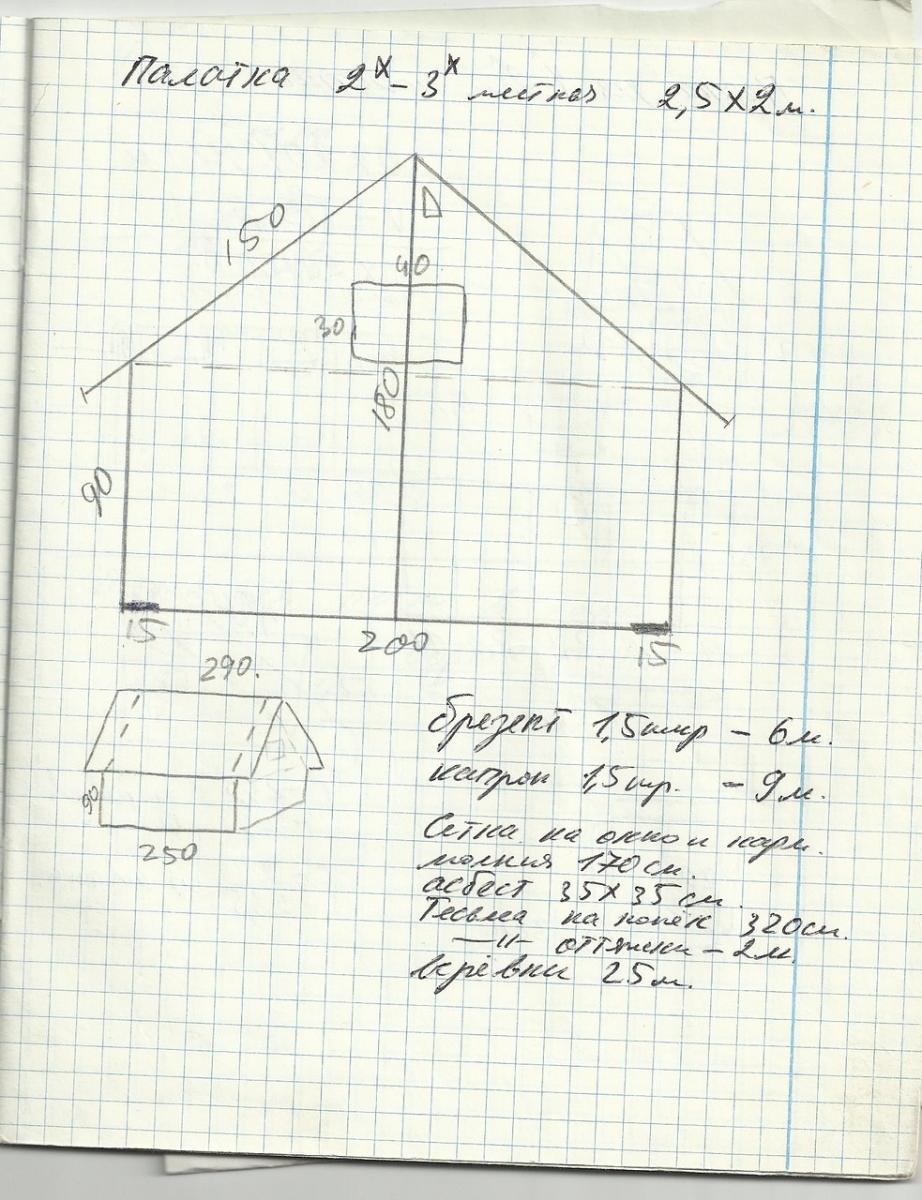 Палатка 2х – 3х местная 2,5 х 2 м.
150
40
30
180
90
15
200
15
290.
90
250
брезент 1,5 шир – 6 м.
капрон 1,5 шр. – 9 м.
Сетка на окно и карм.
молния 170 см.
асбест 35 х 35 см.
Тесьма на конёк 320 см.
—"— оттяжки – 2 м.
верёвки 25 м.